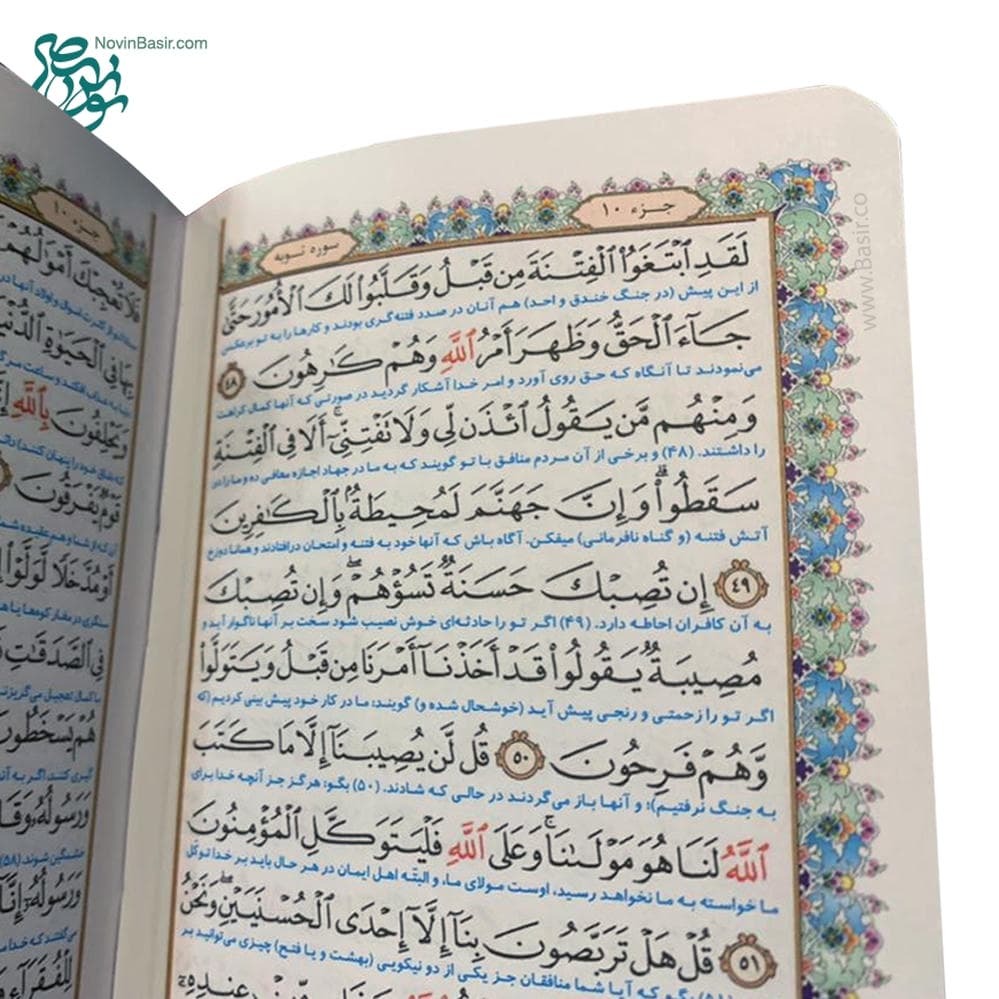 NovinBasir.com
www.Basir.co
جزء ۱۰
سوره توبه
لَقَدِ ٱبْتَغَوُا۟ ٱلْفِتْنَةَ مِن قَبْلُ وَقَلَّبُوا۟ لَكَ ٱلْأُمُورَ حَتَّىٰ
از این پیش (در جنگ خندق و احد) هم آنان در صدد فتنه‌گری بودند و کارها را به تو برعکس
جَآءَ ٱلْحَقُّ وَظَهَرَ أَمْرُ ٱللَّهِ وَهُمْ كَٰرِهُونَ ۴۸
می‌نمودند تا آنگاه که حق روی آورد و امر خدا آشکار گردید در صورتی که آنها کمال کراهت
وَمِنْهُم مَّن يَقُولُ ٱئْذَن لِّى وَلَا تَفْتِنِّىٓ ۚ أَلَا فِى ٱلْفِتْنَةِ
را داشتند. (۴۸) و برخی از آن مردم منافق با تو گویند که به ما در جهاد اجازه معافی ده و ما را در
سَقَطُوا۟ ۗ وَإِنَّ جَهَنَّمَ لَمُحِيطَةٌۢ بِٱلْكَٰفِرِينَ
آتش فتنه (و گناه نافرمانی) میفکن. آگاه باش که آنها خود به فتنه و امتحان درافتادند و همانا دوزخ
۴۹ إِن تُصِبْكَ حَسَنَةٌ تَسُؤْهُمْ ۖ وَإِن تُصِبْكَ
به آن کافران احاطه دارد. (۴۹) اگر تو را حادثه‌ای خوش نصیب شود سخت بر آنها ناگوار آید و
مُصِيبَةٌ يَقُولُوا۟ قَدْ أَخَذْنَآ أَمْرَنَا مِن قَبْلُ وَيَتَوَلَّوا۟
اگر تو را زحمتی و رنجی پیش آید (خوشحال شده و) گویند: ما در کار خود پیش بینی کردیم (که
وَّهُمْ فَرِحُونَ ۵۰ قُل لَّن يُصِيبَنَآ إِلَّا مَا كَتَبَ
به جنگ نرفتیم)؛ و آنها باز می‌گردند در حالی که شادند. (۵۰) بگو: هرگز جز آنچه خدا برای
ٱللَّهُ لَنَا هُوَ مَوْلَىٰنَا ۚ وَعَلَى ٱللَّهِ فَلْيَتَوَكَّلِ ٱلْمُؤْمِنُونَ
ما خواسته به ما نخواهد رسید، اوست مولای ما، و البتّه اهل ایمان در هر حال باید بر خدا توکل
۵۱ قُلْ هَلْ تَرَبَّصُونَ بِنَآ إِلَّآ إِحْدَى ٱلْحُسْنَيَيْنِ ۖ وَنَحْنُ
بگو که آیا شما منافقان جز یکی از دو نیکویی (بهشت و یا فتح) چیزی می‌توانید بر
جزء ۱۰
فَلَا تُعْجِبْكَ أَمْوَٰلُهُمْ
بِهَا فِى ٱلْحَيَوٰةِ
وَيَحْلِفُونَ بِٱللَّهِ
قَوْمٌ يَفْرَقُونَ
أَوْ مُدَّخَلًا لَّوَلَّوْا۟
فِى ٱلصَّدَقَٰتِ
هُمْ يَسْخَطُونَ
وَرَسُولُهُۥ
وَرَسُولُهُۥٓ إِنَّآ
لِلْفُقَرَآءِ